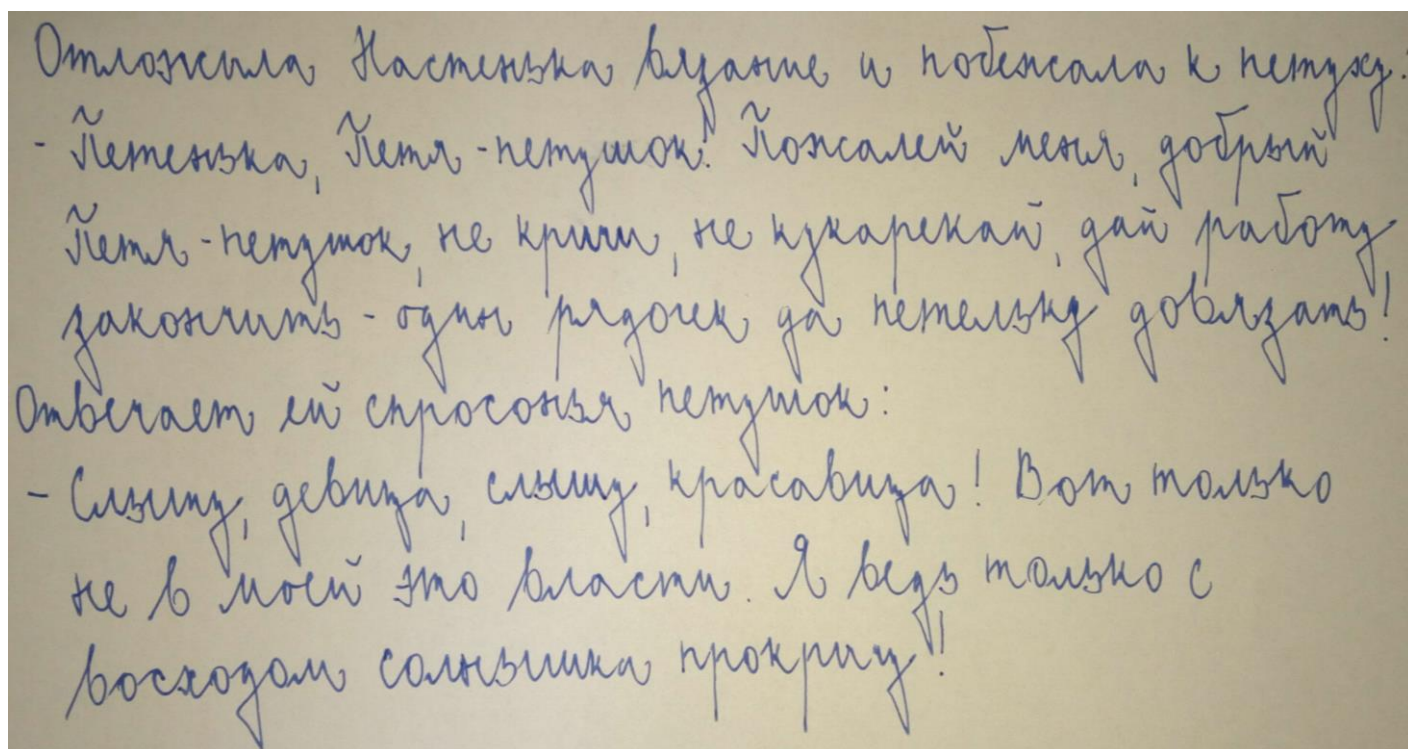 Отложила Настенька вязание и побежала к петуху:
- Петенька, Петя-петушок! Пожалей меня, добрый
Петя-петушок, не кричи, не кукарекай, дай работу
закончить - один рядочек да петельку довязать!
Отвечает ей спросонья петушок:
- Слышу, девица, слышу, красавица! Вот только
не в моей это власти. Я ведь только с
восходом солнышка прокричу!